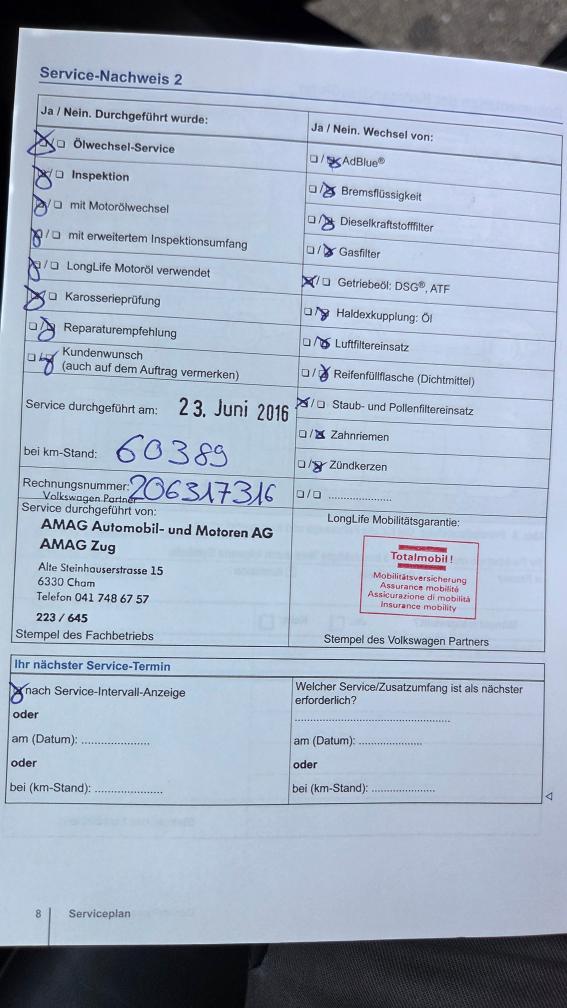 Service-Nachweis 2
Ja / Nein. Durchgeführt wurde:
☒/☐ Ölwechsel-Service
☒/☐ Inspektion
☒/☐ mit Motorölwechsel
☒/☐ mit erweitertem Inspektionsumfang
☒/☐ LongLife Motoröl verwendet
☒/☐ Karosserieprüfung
☐/☒ Reparaturempfehlung
☐/☒ Kundenwunsch
(auch auf dem Auftrag vermerken)
Service durchgeführt am: 23. Juni 2016
bei km-Stand: 60389
Rechnungsnummer: 206317316
Volkswagen Partner
Service durchgeführt von:
AMAG Automobil- und Motoren AG
AMAG Zug
Alte Steinhauserstrasse 15
6330 Cham
Telefon 041 748 67 57
223 / 645
Stempel des Fachbetriebs
Ja / Nein. Wechsel von:
☐/☒ AdBlue®
☐/☒ Bremsflüssigkeit
☐/☒ Dieselkraftstofffilter
☐/☒ Gasfilter
☒/☐ Getriebeöl: DSG®, ATF
☐/☒ Haldexkupplung: Öl
☐/☒ Luftfiltereinsatz
☐/☒ Reifenfüllflasche (Dichtmittel)
☒/☐ Staub- und Pollenfiltereinsatz
☐/☒ Zahnriemen
☐/☒ Zündkerzen
☐/☐ ......................
LongLife Mobilitätsgarantie:
Totalmobil!
Mobilitätsversicherung
Assurance mobilité
Assicurazione di mobilità
Insurance mobility
Stempel des Volkswagen Partners
Ihr nächster Service-Termin
☒ nach Service-Intervall-Anzeige
oder
am (Datum): ......................
oder
bei (km-Stand): ......................
Welcher Service/Zusatzumfang ist als nächster
erforderlich?
..................................................
am (Datum): .....................
oder
bei (km-Stand): .....................
8 Serviceplan